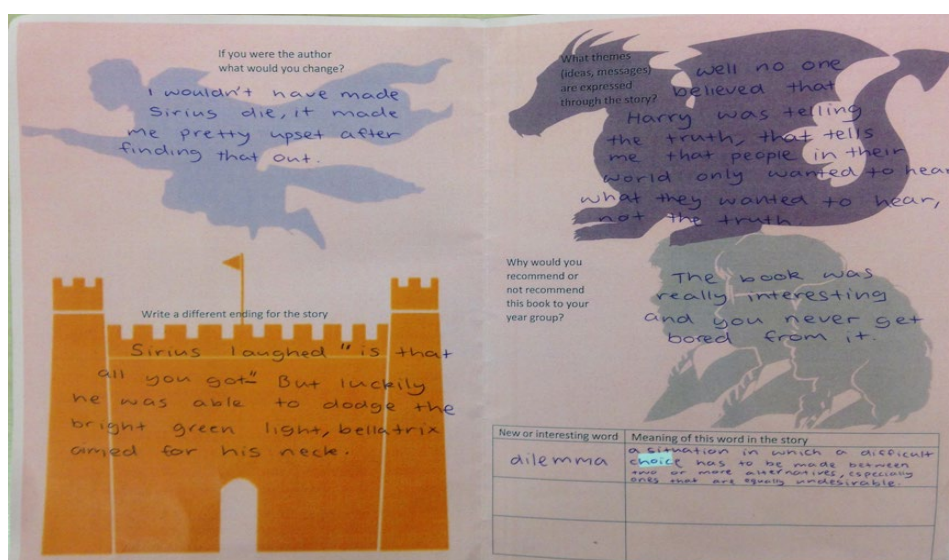 If you were the author
what would you change?
I wouldn't have made
Sirius die, it made
me pretty upset after
finding that out.
Write a different ending for the story
Sirius laughed "is that
all you got" But luckily
he was able to dodge the
bright green light, bellatrix
aimed for his neck.
What themes
(ideas, messages)
are expressed
through the story?
Well no one
believed that
Harry was telling
the truth, that tells
me that people in their
world only wanted to hear
what they wanted to hear,
not the truth
Why would you
recommend or
not recommend
this book to your
year group?
The book was
really interesting
and you never get
bored from it.
New or interesting word
Meaning of this word in the story
dilemma
a situation in which a difficult
choice has to be made between
two or more alternatives, especially
ones that are equally undesirable.